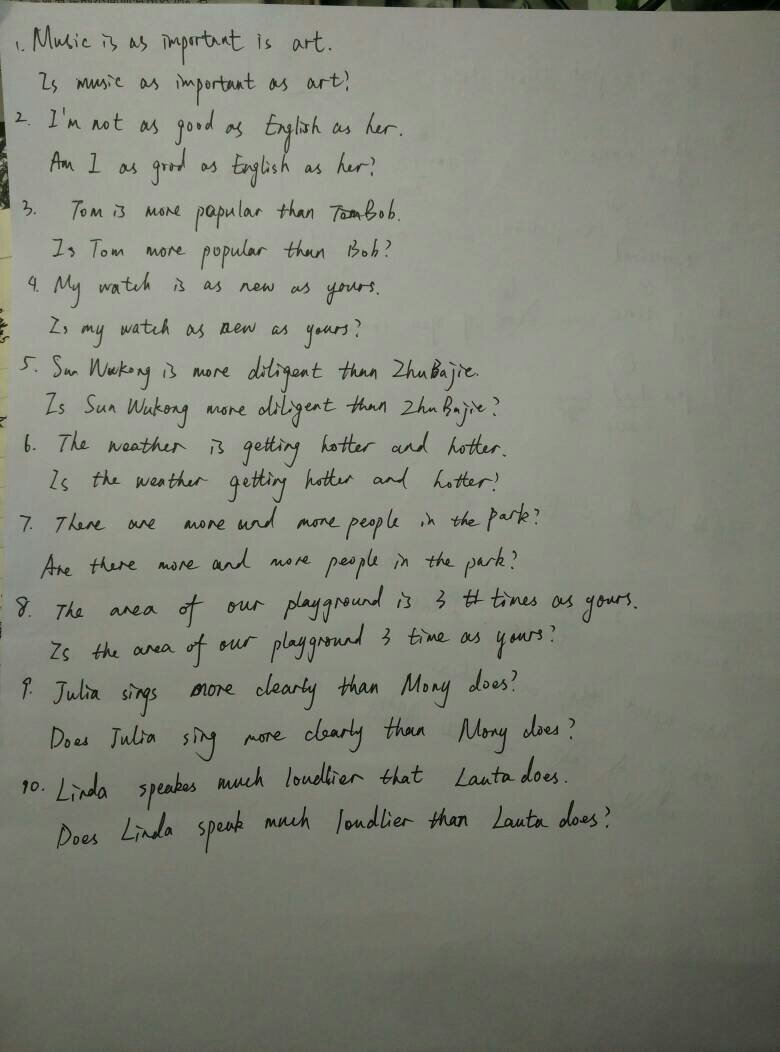 1. Music is as important is art.
Is music as important as art?
2. I'm not as good as English as her.
Am I as good as English as her?
3. Tom is more papular than Tom Bob.
Is Tom more popular than Bob?
4. My watch is as new as yours.
Is my watch as new as yours?
5. Sun Wukong is more diligent than ZhuBajie.
Is Sun Wukong more diligent than ZhuBajie?
6. The weather is getting hotter and hotter.
Is the weather getting hotter and hotter?
7. There are more and more people in the park?
Are there more and more people in the park?
8. The area of our playground is 3 tt times as yours.
Is the area of our playground 3 time as yours?
9. Julia sings more clearly than Mony does?
Does Julia sing more clearly than Mony does?
10. Linda speakes much loudlier that Lauta does.
Does Linda speak much loudlier than Lauta does?